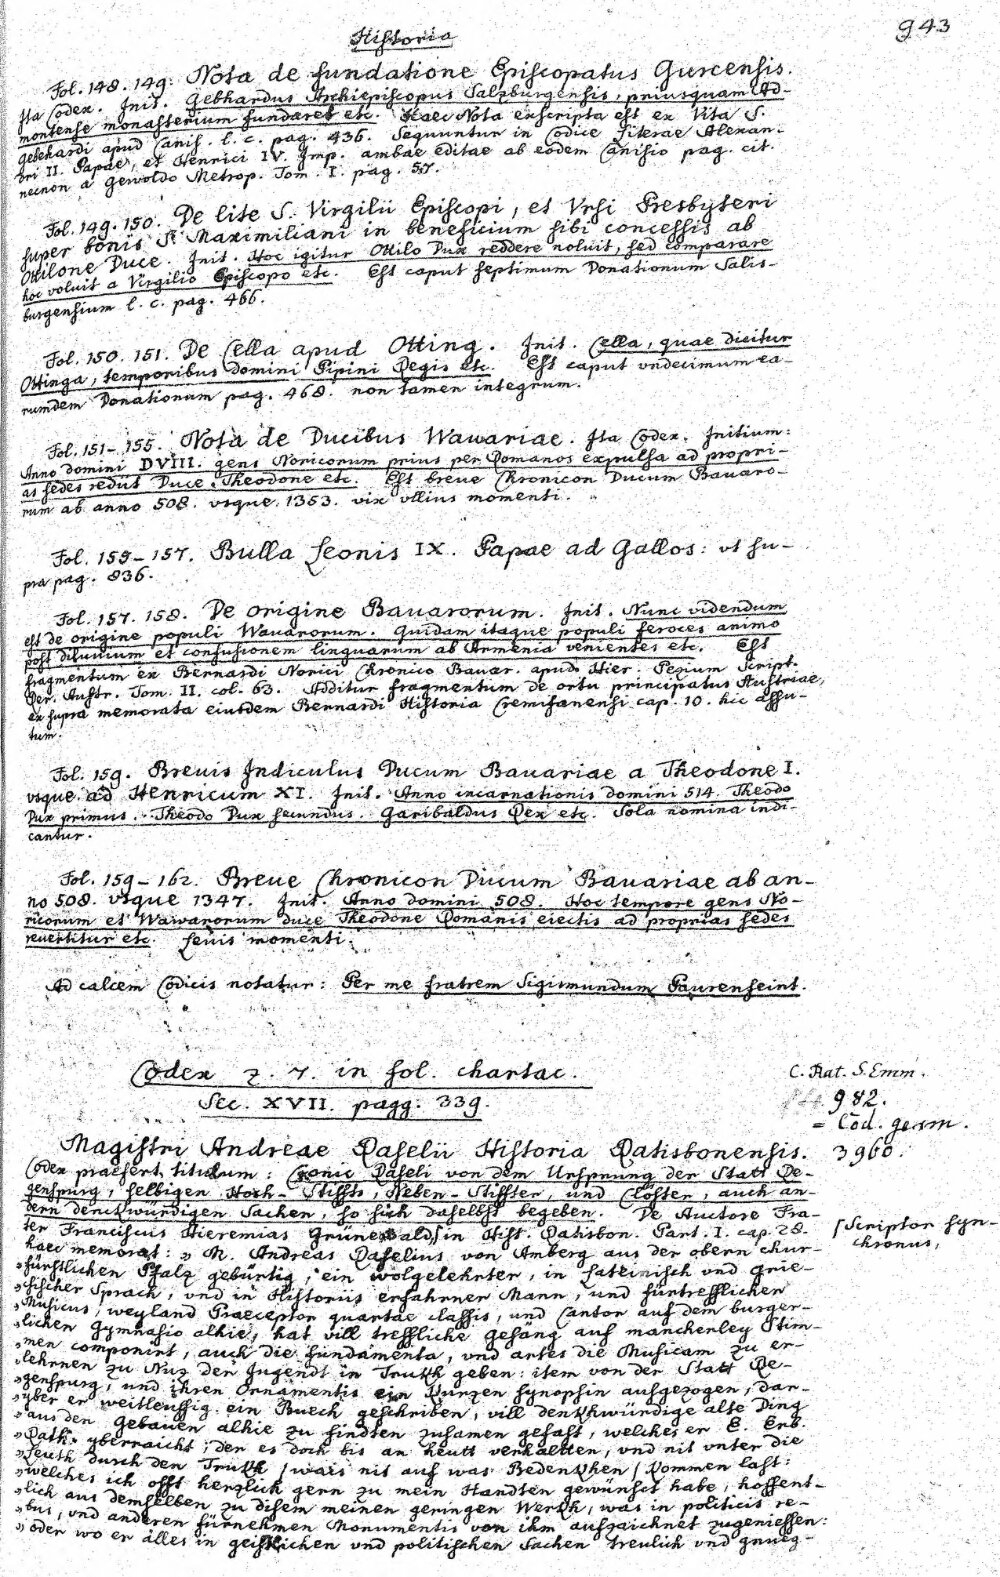 Historia
943
Fol. 148. 149: Nota de fundatione Episcopatus Gurcensis.
Ita Codex. Init. Gebhardus Archiepiscopus Salzburgensis, priusquam Ad-
montense monasterium fundaret etc. Haec Nota exscripta est ex Vita S.
Gebhardi apud Canis. l. c. pag. 436. Sequuntur in Codice Literae Alexan-
dri II. Papae, et Henrici IV. Imp. ambae editae ab eodem Canisio pag. cit.
necnon a Gewoldo Metrop. Tom. I. pag.
Fol. 149. 150. De lite S. Virgilii Episcopi, et Vrsi Presbyteri
super bonis S. Maximiliani in beneficium sibi concessis ab
Ottilone Duce. Init. Hoc igitur Ottilo Dux reddere noluit, sed comparare
hoc voluit a Virgilio Episcopo etc. Est caput septimum Donationum Salis-
burgensium l. c. pag. 466.
Fol. 150. 151. De Cella apud Otting. Init. Cella, quae dicitur
Ottinga, temporibus domini Pipini Regis etc. Est caput vndecimum ea-
rumdem Donationum pag. 468. non tamen integrum.
Fol. 151-155. Nota de Ducibus Wawariae. Ita Codex. Initium:
Anno domini DVIII. gens Noricorum prius per Romanos expulsa ad propri-
as sedes rediit Duce Theodone etc. Est breue Chronicon Ducum Bauaro-
rum ab anno 508. vsque 1353. vix vllius momenti.
Fol. 155-157. Bulla Leonis IX. Papae ad Gallos: vt su-
pra pag. 836.
Fol. 157. 158. De origine Bauarorum. Init. Nunc videndum
est de origine populi Wauarorum. Quidam itaque populi feroces animo
post diluuium et confusionem linguarum ab Armenia venientes etc. Est
fragmentum ex Bernardi Norici Chronico Bauar. apud Hier. Pezium Script.
Rer. Austr. Tom. II. col. 63. Additur fragmentum de ortu principatus Austriae,
ex supra memorata eiusdem Bernardi Historia Cremifanensi cap. 10. hic assu-
tum.
Fol. 159. Breuis Indiculus Ducum Bauariae a Theodone I.
vsque ad Henricum XI. Init. Anno incarnationis domini 514. Theodo
Dux primus. Theodo Dux secundus. Garibaldus Rex etc. Sola nomina indi-
cantur.
Fol. 159-162. Breue Chronicon Ducum Bauariae ab an-
no 508. vsque 1347. Init. Anno domini 508. Hoc tempore gens No-
ricorum et Wawarorum duce Theodone Romanis eiectis ad proprias sedes
reuertitur etc. Leuis momenti.
Ad calcem Codicis notatur: Per me fratrem Sigismundum Paurenfeint.
Codex z. 7. in fol. chartac.
Sec. XVII. pagg. 339.
C. Rat. S. Emm.
982.
= Cod. germ.
3960.
Magistri Andreae Raselii Historia Ratisbonensis.
Codex praefert titulum: Cronic Raseli von dem Ursprung der Statt Re-
genspurg, selbigen Hoch-Stiffts, Neben-Stiffter, und Clöster, auch an-
dern denckwürdigen Sachen, so sich daselbst begeben. De Auctore Fra-
ter Franciscus Hieremias Grünewald/ in Hist. Ratisbon. Part. I. cap. 28.
/ Scriptor syn-
chronus,
haec memorat: „M. Andreas Raselius von Amberg aus der obern Chur-
„fürstlichen Pfalz gebürtig, ein wolgelehrter, in Lateinisch vnd Grie-
„chischer Sprach, vnd in Historiis erfahrner Mann, vnd fürtrefflichen
„Musicus, weyland Praeceptor quartae classis, vnd Cantor auf dem burger-
„lichen Gymnasio alhie, hat vill treffliche gesäng auf mancherley Stim-
„men componirt, auch die fundamenta, vnd artes die Musicam zu er-
„lehrnen zu Nuz der Jugendt in Truckh geben: item von der Statt Re-
„genspurg, vnd ihren Ornamentis ein kurzen synopsin aufgezogen, dar-
„yber er weitleuffig ein Buech geschriben, vill denckhwürdige alte Ding
„aus den Gebauen alhie zu findten zusamen gefast, welches er E. Erb.
„Rath yberraicht; der es doch bis an heutt verhaltten, vnd nit vnter die
„Leuth durch den Truckh / wais nit auf was Bedenckhen / kommen last:
„welches ich offt herzlich gern zu mein Handten gewünscht habe, hoffent-
„lich aus demselben zu disem meinen geringen Werckh, was in politicis re-
„bus, vnd anderen fürnehmen Monumentis von ihm aufgaichnet zugeniessen:
„oder wo er alles in geistlichen vnd politischen Sachen treulich vnd gnueg-